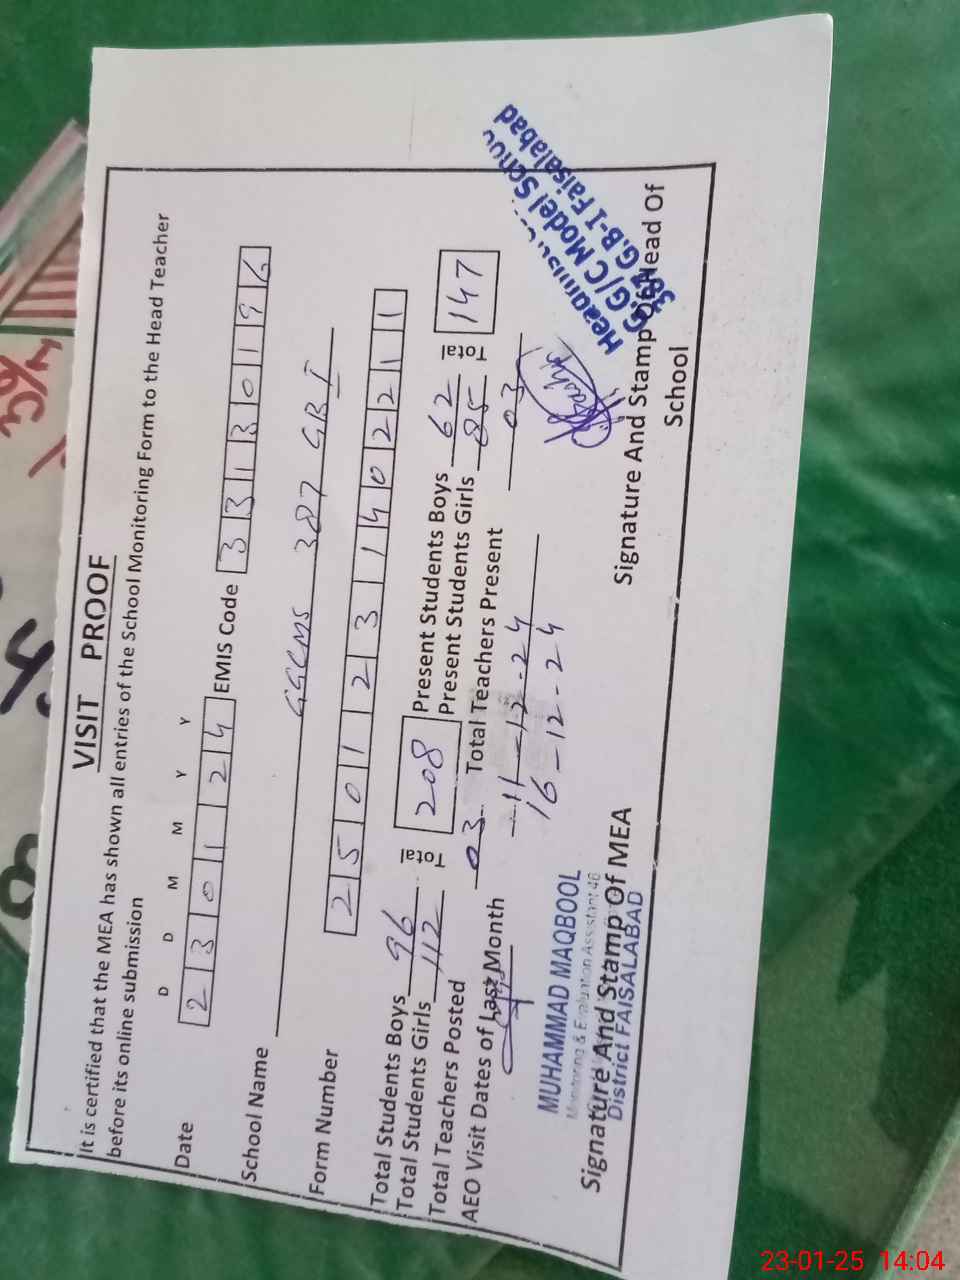 VISIT PROOF
It is certified that the MEA has shown all entries of the School Monitoring Form to the Head Teacher
before its online submission
D D M M Y Y
Date 2 3 0 1 2 4 EMIS Code 3 3 1 3 0 1 9 6
School Name GGCMS 387 GB I
Form Number 2 5 0 1 2 3 1 4 0 2 2 1 1
Total Students Boys 96 Total 208 Present Students Boys 62 Total 147
Total Students Girls 112 Present Students Girls 85
Total Teachers Posted 03 Total Teachers Present 03
AEO Visit Dates of Last Month 11-12-24
16-12-24
MUHAMMAD MAQBOOL
Monitoring & Evaluation Assistant 46
District FAISALABAD
Signature And Stamp Of MEA
G.G/C Model
387 G.B-I Faisalabad
Signature And Stamp Of Head Of
School
23-01-25 14:04